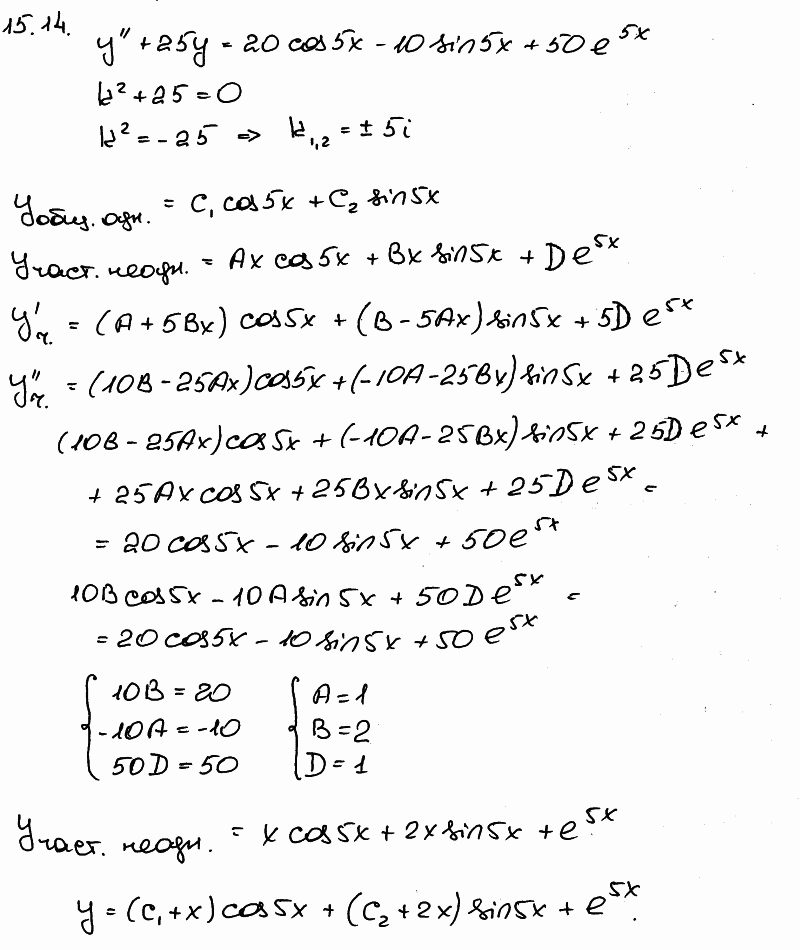 15.14.
y'' + 25y = 20 cos5x - 10 sin5x + 50 e^5x
k² + 25 = 0
k² = -25 => k₁,₂ = ± 5i
Yобщ. одн. = C₁ cos5x + C₂ sin5x
Yчаст. неодн. = Ax cos5x + Bx sin5x + D e^5x
Y'ч. = (A + 5Bx) cos5x + (B - 5Ax) sin5x + 5D e^5x
Y''ч. = (10B - 25Ax) cos5x + (-10A - 25Bx) sin5x + 25D e^5x
(10B - 25Ax) cos5x + (-10A - 25Bx) sin5x + 25D e^5x +
+ 25Ax cos5x + 25Bx sin5x + 25D e^5x =
= 20 cos5x - 10 sin5x + 50e^5x
10B cos5x - 10A sin5x + 50D e^5x =
= 20 cos5x - 10 sin5x + 50 e^5x
{ 10B = 20 { A = 1
-10A = -10 B = 2
50D = 50 D = 1
Yчаст. неодн. = x cos5x + 2x sin5x + e^5x
y = (C₁ + x) cos5x + (C₂ + 2x) sin5x + e^5x.